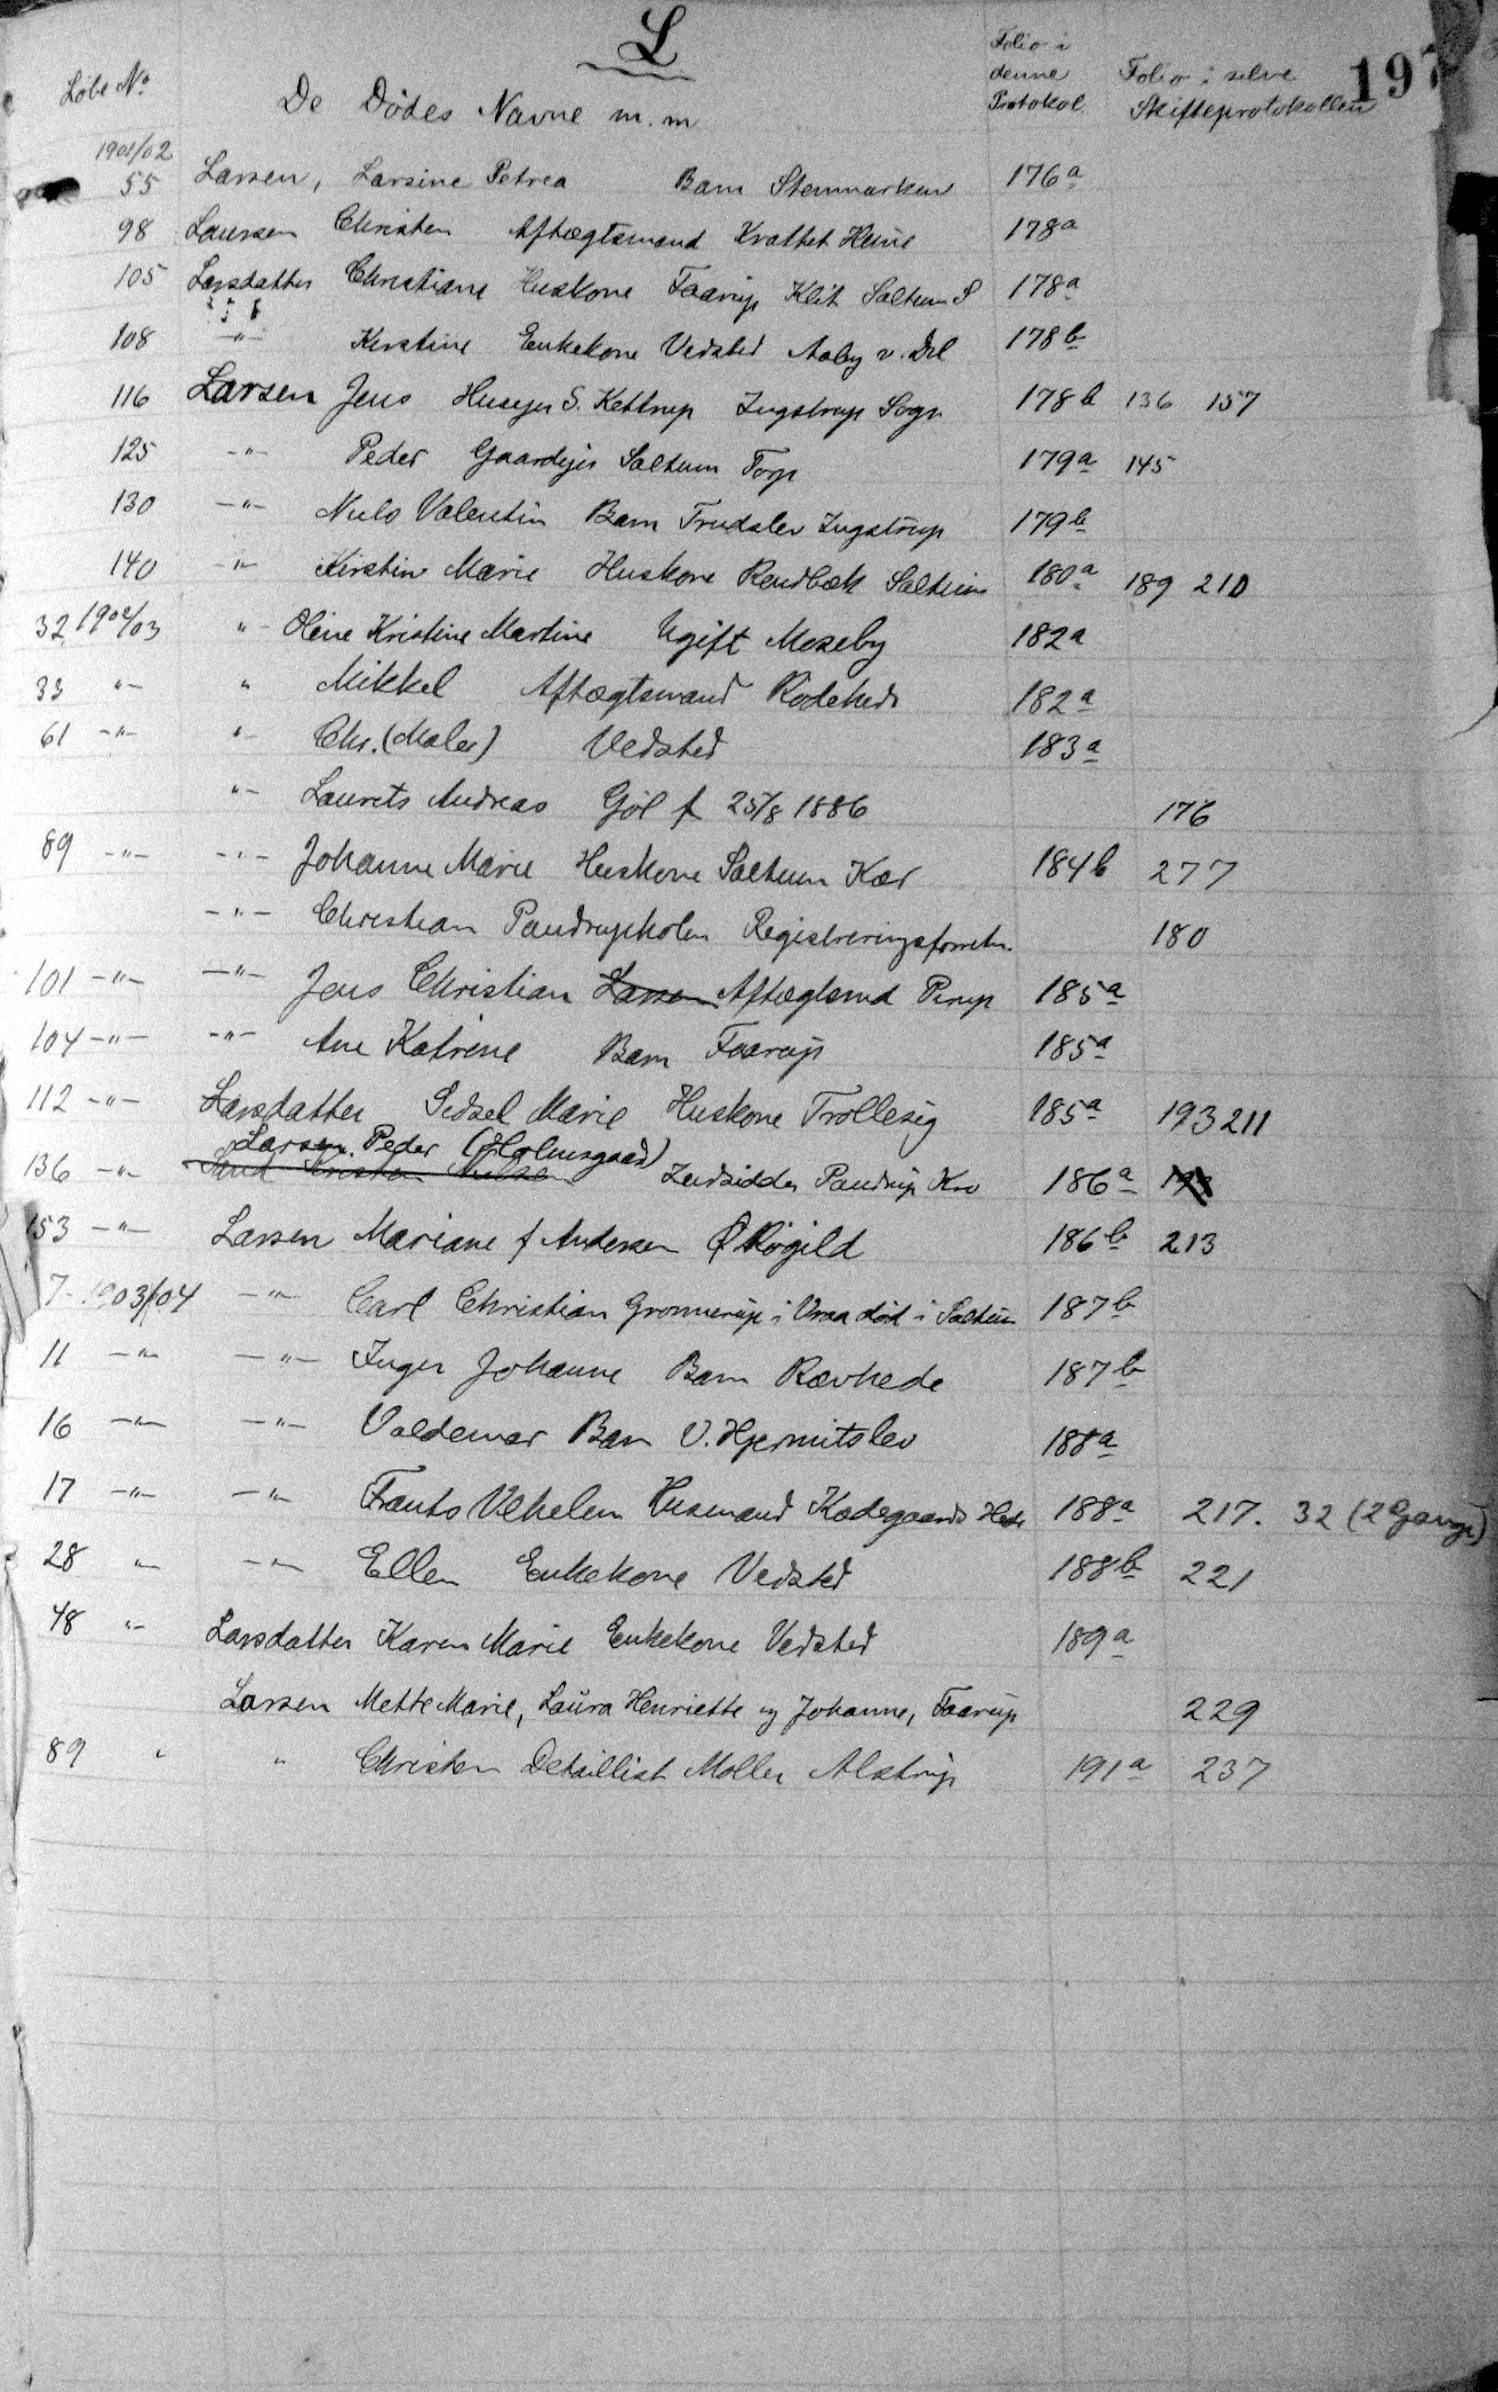 L
197
Löbe No De Dödes Navne m. m Folio i denne Protokol Folio i selve Skifteprotokollen
1901/02
55 Larsen, Larsine Petrea Barn Stenmarken 176a
98 Laursen Christen Aftægtsmand Krattet Hune 178a
105 Larsdatter Christiane Huskone Faarup Klit Saltum S 178a
108 -"- Kirstine Enkekone Vedsted Aaby v. Del 178b
116 Larsen Jens Husejer S. Kettrup Ingstrup Sogn 178b 136 157
125 -"- Peder Gaardejer Saltum Torp 179a 145
130 -"- Niels Valentin Barn Trudslev Ingstrup 179b
140 -"- Kirstin Marie Huskone Rendbæk Saltum 180a 189 210
32 1902/03 "- Oline Kristine Martine Ugift Moseby 182a
33 "- " Mikkel Aftægtsmand Rödehede 182a
61 -"- " Chr. (Maler) Vedsted 183a
"- Laurits Andreas Gjöl f 25/8 1886 176
89 -"- -"- Johanne Marie Huskone Saltum Kær 184b 277
-"- Christian Pandrupholm Registreringsforretn. 180
101 -"- -"- Jens Christian Larsen Aftægtsmd Pirup 185a
104 -"- -"- Ane Katrine Barn Faarup 185a
112 -"- Larsdatter Sidsel Marie Huskone Trollesig 185a 193 211
Larsen. Peder (Holmsgaard)
136 -"- Indsidder Pandrup Kro 186a
153 -"- Larsen Mariane f Andersen Ø Rögild 186b 213
7 - 1903/04 -"- Carl Christian Grønnerup i Vraa död i Saltum 187b
11 -"- -"- Inger Johanne Barn Rævhede 187b
16 -"- -"- Valdemar Barn V. Hjermitslev 188a
17 -"- -"- Frants Vilhelm Husmand Kodegaards Hede 188a 217. 32 (2 Gange)
28 " -"- Ellen Enkekone Vedsted 188b 221
48 "- Larsdatter Karen Marie Enkekone Vedsted 189a
Larsen Mette Marie, Laura Henriette og Johanne, Faarup 229
89 " " Christen Detaillist Møller Alstrup 191a 237